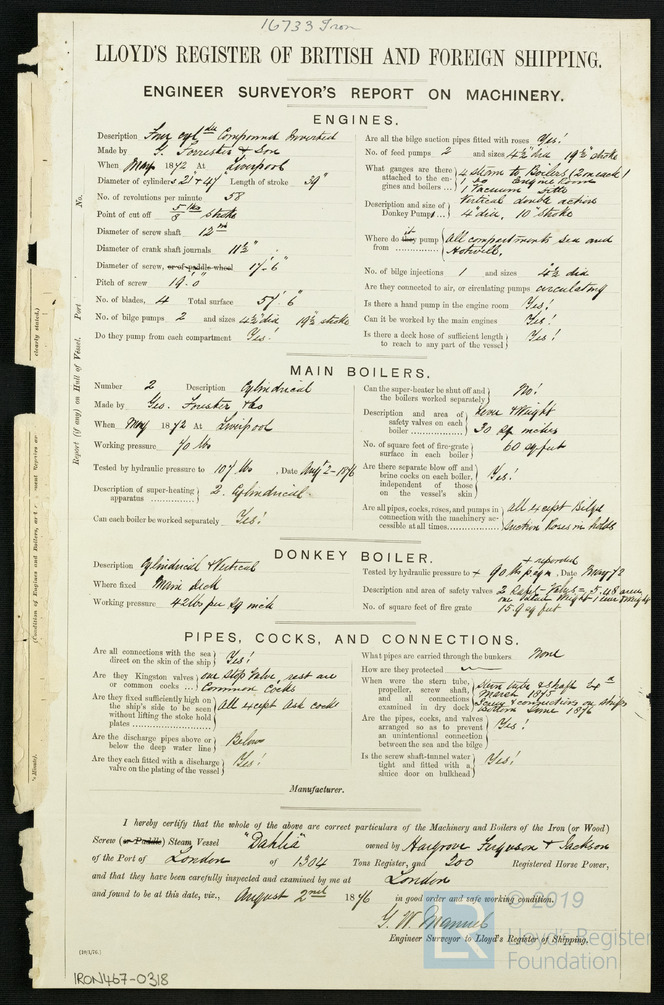 16733 Iron
LLOYD'S REGISTER OF BRITISH AND FOREIGN SHIPPING.
ENGINEER SURVEYOR'S REPORT ON MACHINERY.
ENGINES.
Description Four cyl Compound Inverted
Made by G. Forrester & Son
When May 1872 At Liverpool
Diameter of cylinders 21 & 47 Length of stroke 39"
No. of revolutions per minute 58
Point of cut off 5/8 stroke
Diameter of screw shaft 12
Diameter of crank shaft journals 11½"
Diameter of screw, or of paddle wheel 17'.6"
Pitch of screw 19'.0"
No. of blades, 4 Total surface 57'.6"
No. of bilge pumps 2 and sizes 4½" dia 19½" stroke
Do they pump from each compartment Yes!
Are all the bilge suction pipes fitted with roses Yes!
No. of feed pumps 2 and sizes 4½" dia 19½" stroke
What gauges are there attached to the engines and boilers ... 4 steam to Boilers (2 on each)
1 Do Engine Room
1 Vacuum Ditto
Description and size of Donkey Pump ... Vertical double action
4" dia, 10" stroke
Where do they it pump from All compartments, sea and
Hotwell.
No. of bilge injections 1 and sizes 4½ dia
Are they connected to air, or circulating pumps circulating
Is there a hand pump in the engine room Yes!
Can it be worked by the main engines Yes!
Is there a deck hose of sufficient length to reach to any part of the vessel Yes!
MAIN BOILERS.
Number 2 Description Cylindrical
Made by Geo. Forester & Co
When May 1872 At Liverpool
Working pressure 70 lbs
Tested by hydraulic pressure to 107 lbs, Date Augt 2-1876
Description of super-heating apparatus 2. Cylindrical
Can each boiler be worked separately Yes!
Can the super-heater be shut off and the boilers worked separately No!
Description and area of safety valves on each boiler Lever & Weight
30 sq inches
No. of square feet of fire-grate surface in each boiler 60 sq feet
Are there separate blow off and brine cocks on each boiler, independent of those on the vessel's skin Yes!
Are all pipes, cocks, roses, and pumps in connection with the machinery accessible at all times All except Bilge
Suction Roses in holds
DONKEY BOILER.
Description Cylindrical & Vertical
Where fixed Main deck
Working pressure 42 lbs per sq inch
+ reported
Tested by hydraulic pressure to + 90 lbs p sq in, Date May 72
Description and area of safety valves
No. of square feet of fire grate 15.9 sq feet
PIPES, COCKS, AND CONNECTIONS.
Are all connections with the sea direct on the skin of the ship Yes!
Are they Kingston valves or common cocks ... One Stop Valve, rest are
Common Cocks
Are they fixed sufficiently high on the ship's side to be seen without lifting the stoke hold plates All except Ash cocks
Are the discharge pipes above or below the deep water line Below
Are they each fitted with a discharge valve on the plating of the vessel Yes!
What pipes are carried through the bunkers None
How are they protected
When were the stern tube, propeller, screw shaft, and all connections examined in dry dock Stern tube & Shaft Exd
March 1875
Screw & connections on ships
bottom June 1876
Are the pipes, cocks, and valves arranged so as to prevent an unintentional connection between the sea and the bilge Yes!
Is the screw shaft-tunnel water tight and fitted with a sluice door on bulkhead Yes!
Manufacturer.
I hereby certify that the whole of the above are correct particulars of the Machinery and Boilers of the Iron (or Wood)
Screw (or Paddle) Steam Vessel "Dahlia" owned by Hargrove Ferguson & Jackson
of the Port of London of 1304 Tons Register, and 200 Registered Horse Power,
and that they have been carefully inspected and examined by me at London
and found to be at this date, viz., August 2nd 1876 in good order and safe working condition.
G. W. Manuel
Engineer Surveyor to Lloyd's Register of Shipping.
IRON467-0318
Report (if any) on Hull of Vessel. Port No.
clearly stated.)
LR
© 2019
Lloyd's Register
Foundation